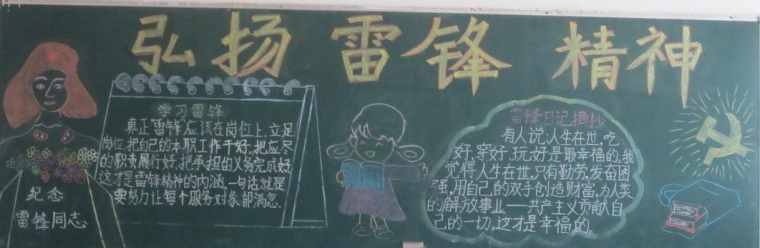 弘扬 雷锋 精神
学习雷锋
真正雷锋应该在岗位上,立足
岗位,把自己的本职工作干好,把应尽
的职责履行好,把承担的义务完成好,
这才是雷锋精神的内涵,一句话就是
要努力让每个服务对象都满意.
纪念
雷锋同志
雷锋日记摘抄
有人说:人生在世,吃
好,穿好,玩好是最幸福的,我
觉得人生在世,只有勤劳,发奋图
强,用自己的双手创造财富,为人类
的解放事业——共产主义贡献自
己的一切,这才是幸福的.